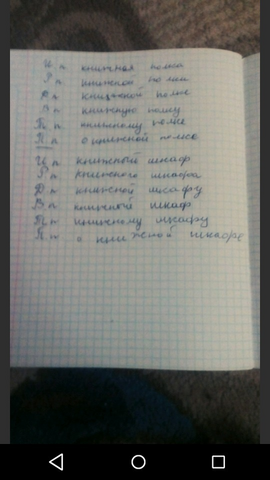 И п книжная полка
Р п книжной полки
Д п книжной полке
В п книжную полку
Т п книжному полке
П п о книжной полке
И п книжный шкаф
Р п книжного шкафа
Д п книжной шкафу
В п книжный шкаф
Т п книжному шкафу
П п о книжной шкафе